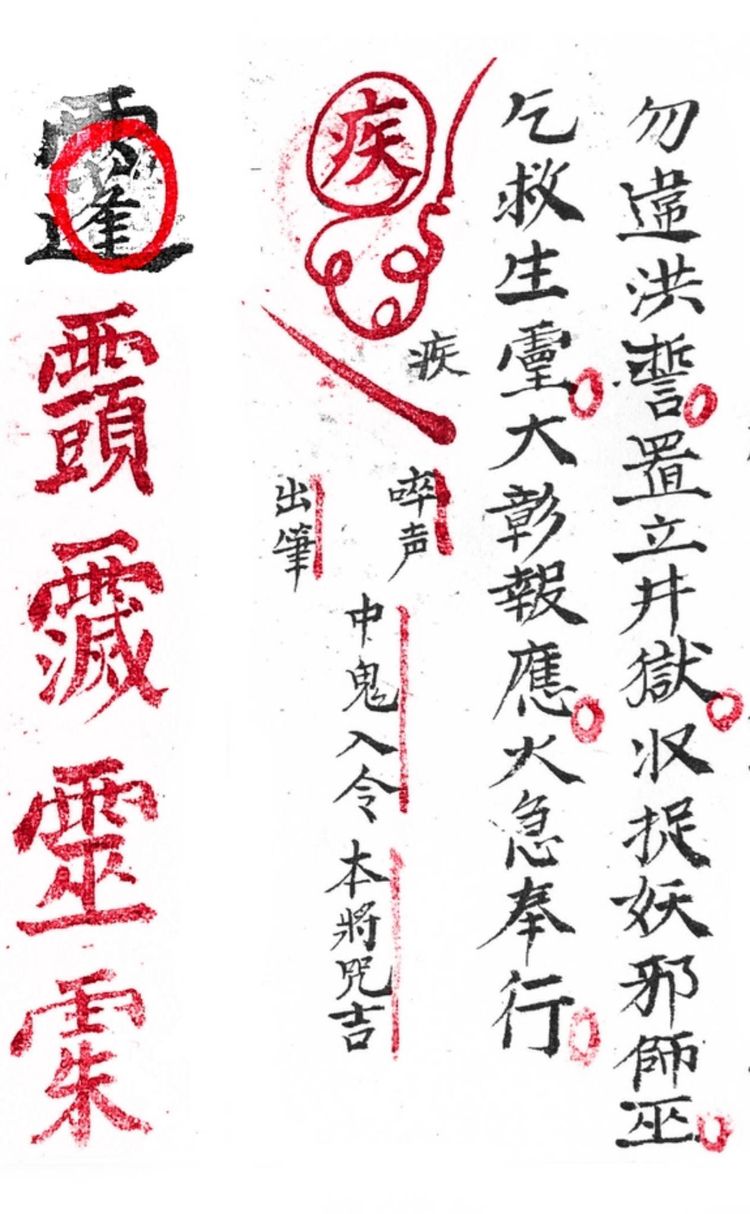 勿違洪誓置立井獄収捉妖邪師巫
乞救生霊大彰報應火急奉行
疾
疾
啐声
出筆
中鬼入令
本將咒吉